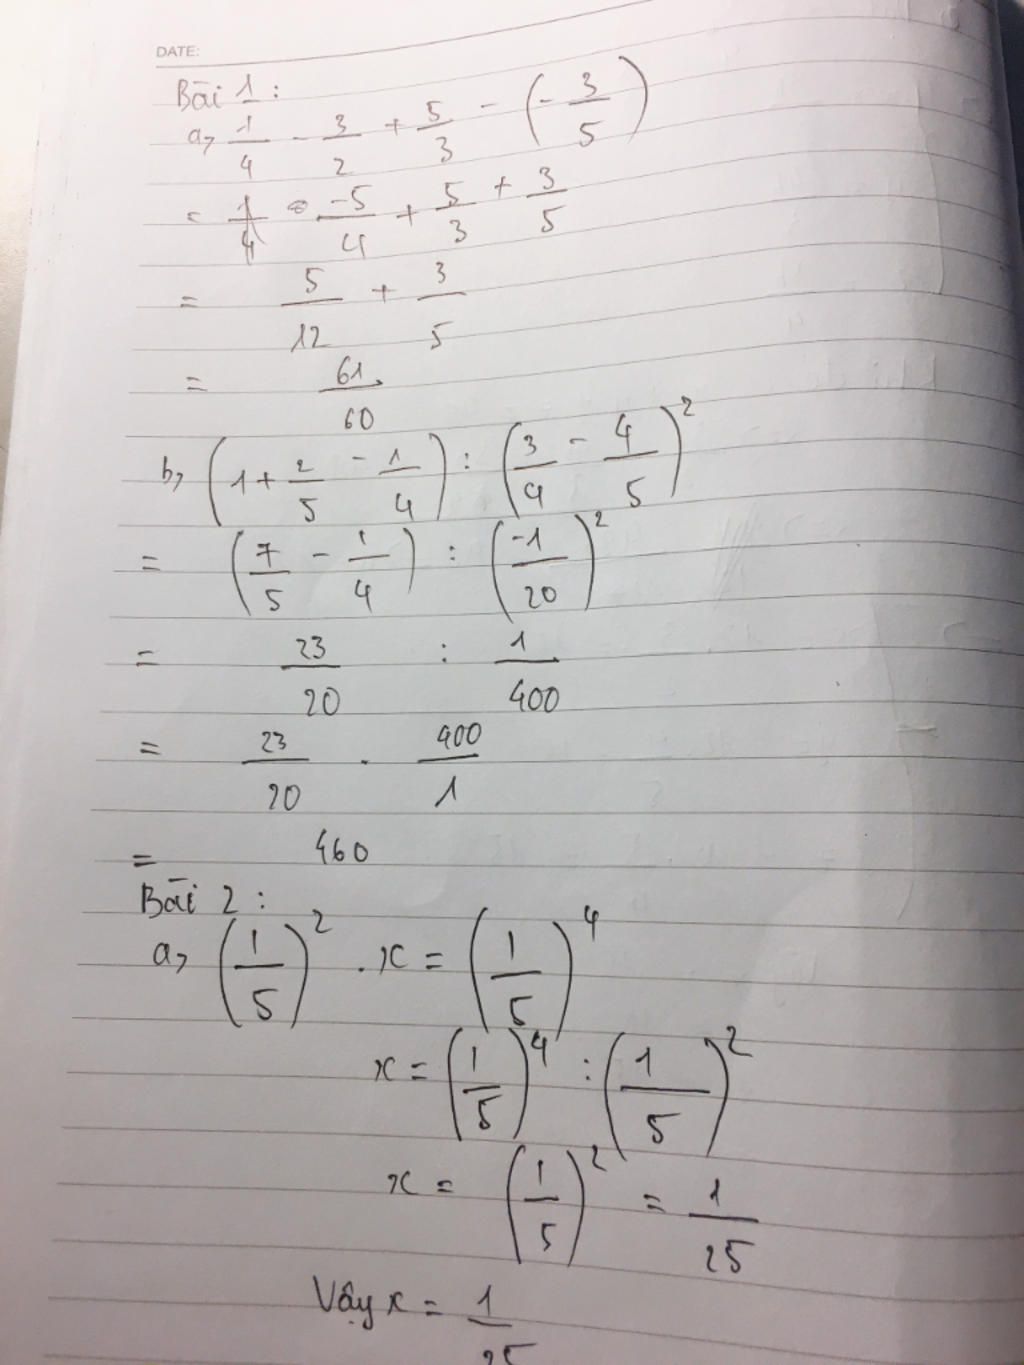 DATE:
Bài 1:
a, 1/4 - 3/2 + 5/3 - (- 3/5)
= -5/4 + 5/3 + 3/5
= 5/12 + 3/5
= 61/60
b, (1 + 2/5 - 1/4) : (3/4 - 4/5)²
= (7/5 - 1/4) : (-1/20)²
= 23/20 : 1/400
= 23/20 . 400/1
= 460
Bài 2:
a, (1/5)² . x = (1/5)⁴
x = (1/5)⁴ : (1/5)²
x = (1/5)² = 1/25
Vậy x = 1/25